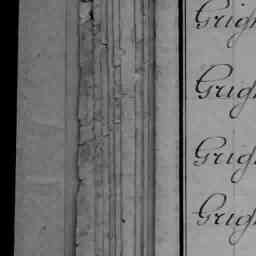 Grigh
Grigh
Grigh
Grigh